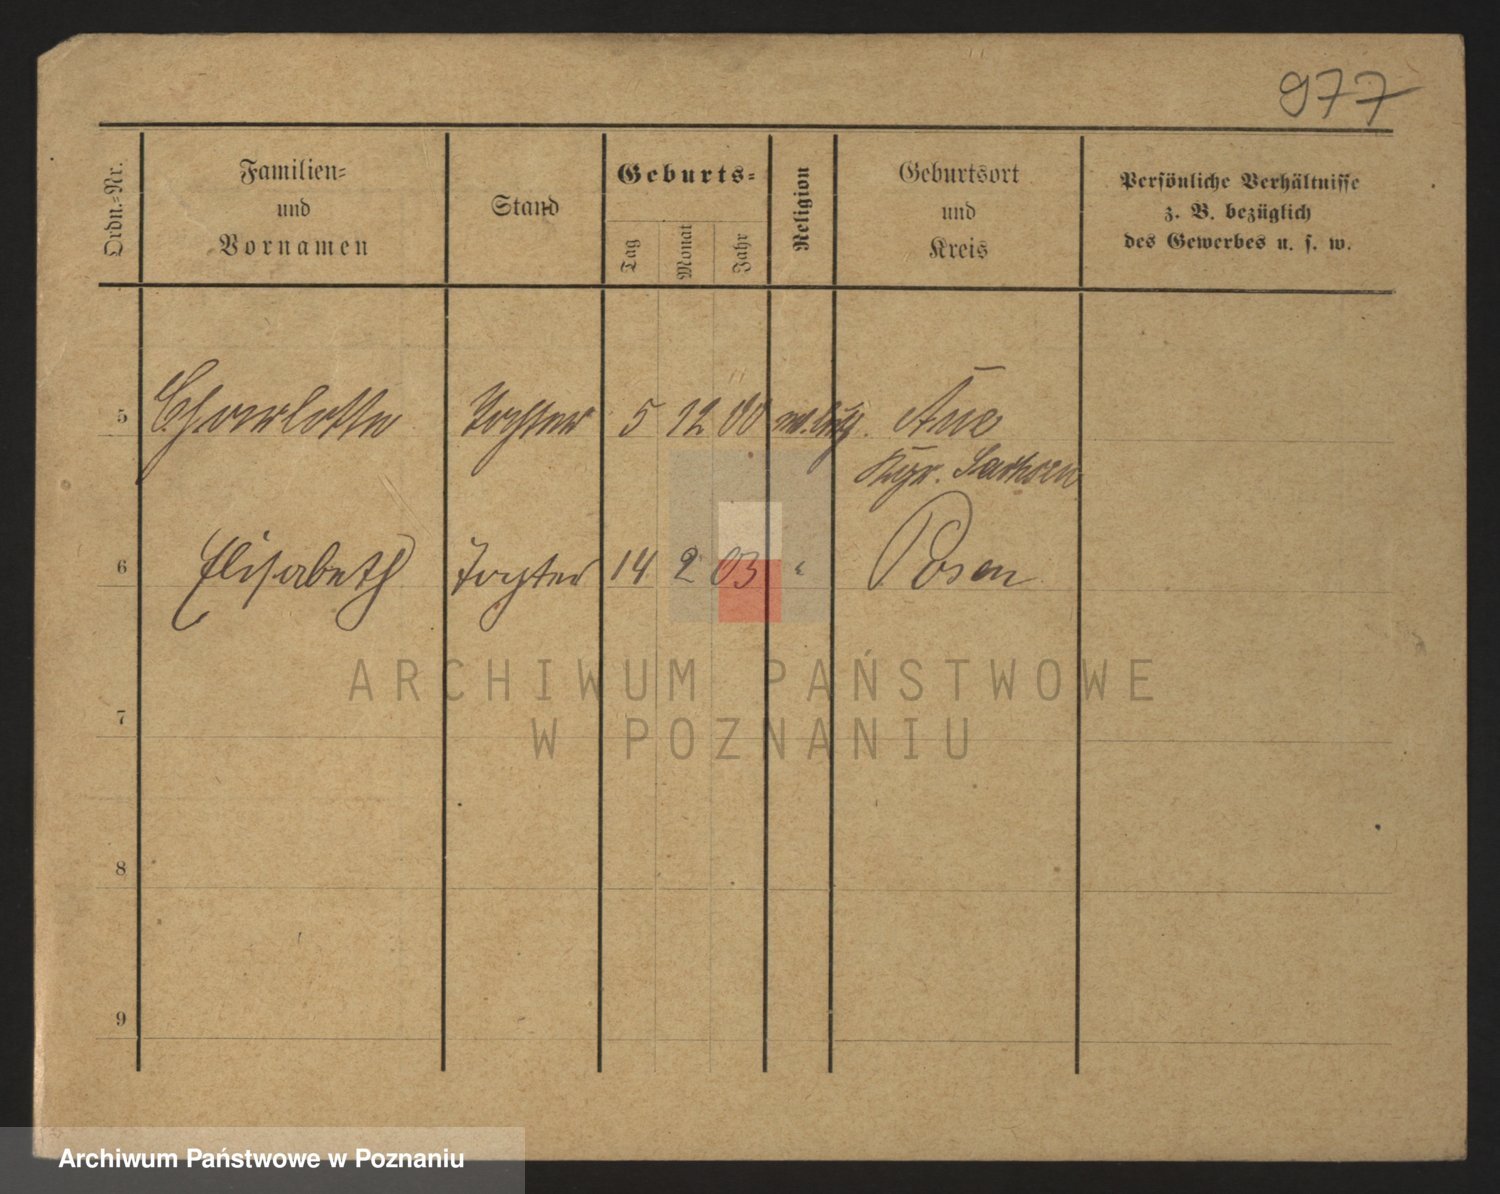 977
Ordn.-Nr.
Familien-
und
Vornamen
Stand
Geburts-
Tag
Monat
Jahr
Religion
Geburtsort
und
Kreis
Persönliche Verhältnisse
z. B. bezüglich
des Gewerbes u. s. w.
5 Charlotte Tochter 5 12 00 Aue
Kgr. Sachsen
6 Elisabeth Tochter 14 2 03 " Posen
ARCHIWUM PAŃSTWOWE
W POZNANIU
7
8
9
Archiwum Państwowe w Poznaniu